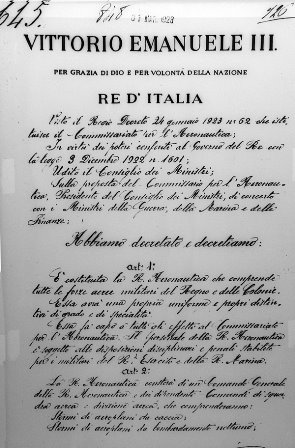 645.
VITTORIO EMANUELE III.
PER GRAZIA DI DIO E PER VOLONTÀ DELLA NAZIONE
RE D'ITALIA
Visto il Regio Decreto 24 gennaio 1923 n. 62 che isti,
tuisce il Commissariato per l'Aeronautica;
In virtù dei poteri conferiti al Governo del Re con
la legge 3 Dicembre 1922 n. 1601;
Udito il Consiglio dei Ministri;
Sulla proposta del Commissario per l'Aeronau,
tica, Presidente del Consiglio dei Ministri, di concerto
con i Ministri della Guerra, della Marina e delle
Finanze;
Abbiamo decretato e decretiamo:
art. 1°
È costituita la R. Aeronautica che comprende
tutte le forze aeree militari del Regno e delle Colonie.
Essa avrà una propria uniforme e propri distin,
tivi di grado e di specialità.
Essa fa capo a tutti gli effetti al Commissariato
per l'Aeronautica. Il personale della R. Aeronautica
è soggetto alle disposizioni disciplinari e penali stabilite
per i militari del R. Esercito e della R. Marina.
art. 2°
La R. Aeronautica consterà di un Comando Generale
della R. Aeronautica e dei dipendenti Comandi di squa,
dra aerea e divisione aerea che comprenderanno:
Stormi di aeroplani da caccia;
Stormi di aeroplani da bombardamento notturno;